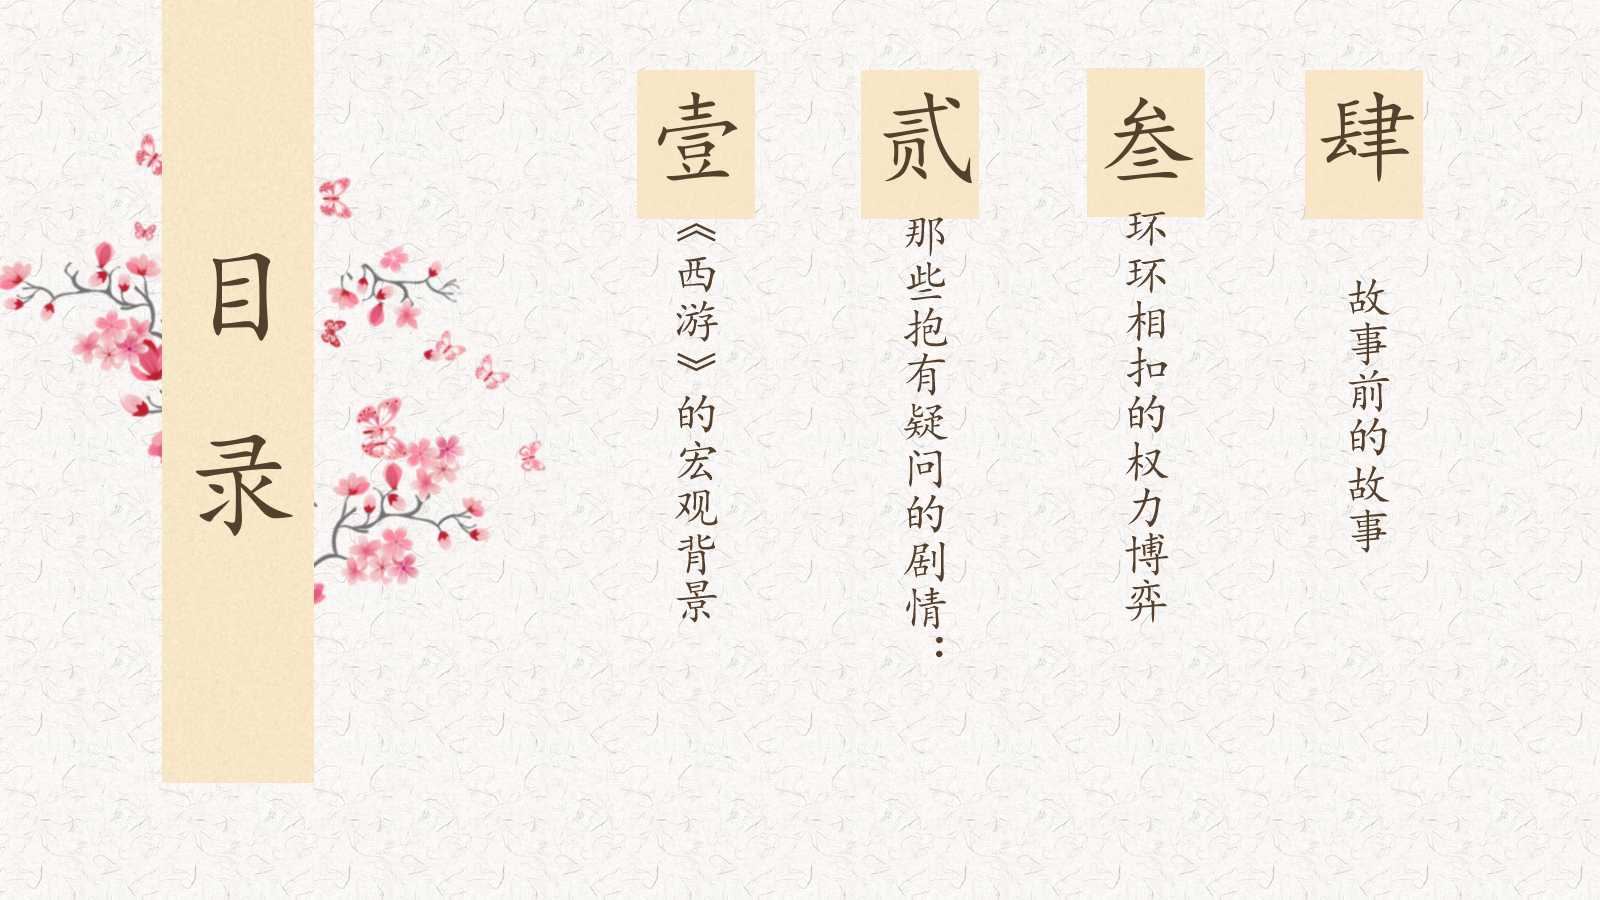 目录
壹
《西游》的宏观背景
贰
那些抱有疑问的剧情：
叁
环环相扣的权力博弈
肆
故事前的故事